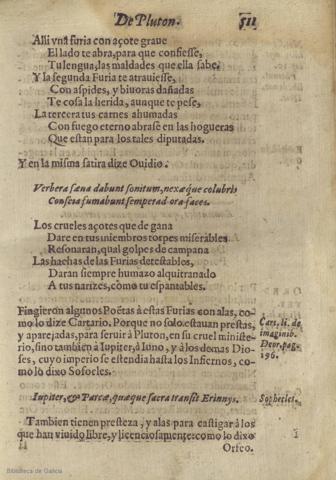 De Pluton. 511
Alli vna furia con açote graue
El lado te abra, para que confiesse,
Tu lengua, las maldades que ella sabe.
Y la segunda Furia te atrauiesse,
Con aspides, y biuoras dañadas
Te cosa la herida, aunque te pese,
La tercera tus carnes ahumadas
Con fuego eterno abrase en las hogueras
Que estan para los tales diputadas.
Y en la misma satira dize Ouidio.
Verbera sæua dabunt sonitum, nexæque colubris
Conscia fumabunt semper ad ora faces.
Los crueles açotes que de gana
Dare en tus miembros torpes miserables
Resonaran, qual golpes de campana
Las hachas de las Furias detestables,
Daran siempre humazo alquitranado
A tus narizes, como tu espantables.
Fingieron algunos Poëtas à estas Furias con alas, co-
mo lo dize Cartario. Porque no solo estauan prestas,
y aparejadas, para seruir à Pluton, en su cruel ministe-
rio, sino tambien à Iupiter, à Iuno, y à los demas Dio-
ses, cuyo imperio se estendia hasta los Infiernos, co-
mo lo dixo Sofocles.
Cart. li. de
imaginib.
Deor. pag.
196.
Iupiter, & Parcæ, quæque sacra transit Erinnys.
Sophocles.
Tambien tienen presteza, y alas para castigar á los
que han viuido libre, y licenciosamente: como lo dixo
Orfeo.
Biblioteca de Galicia